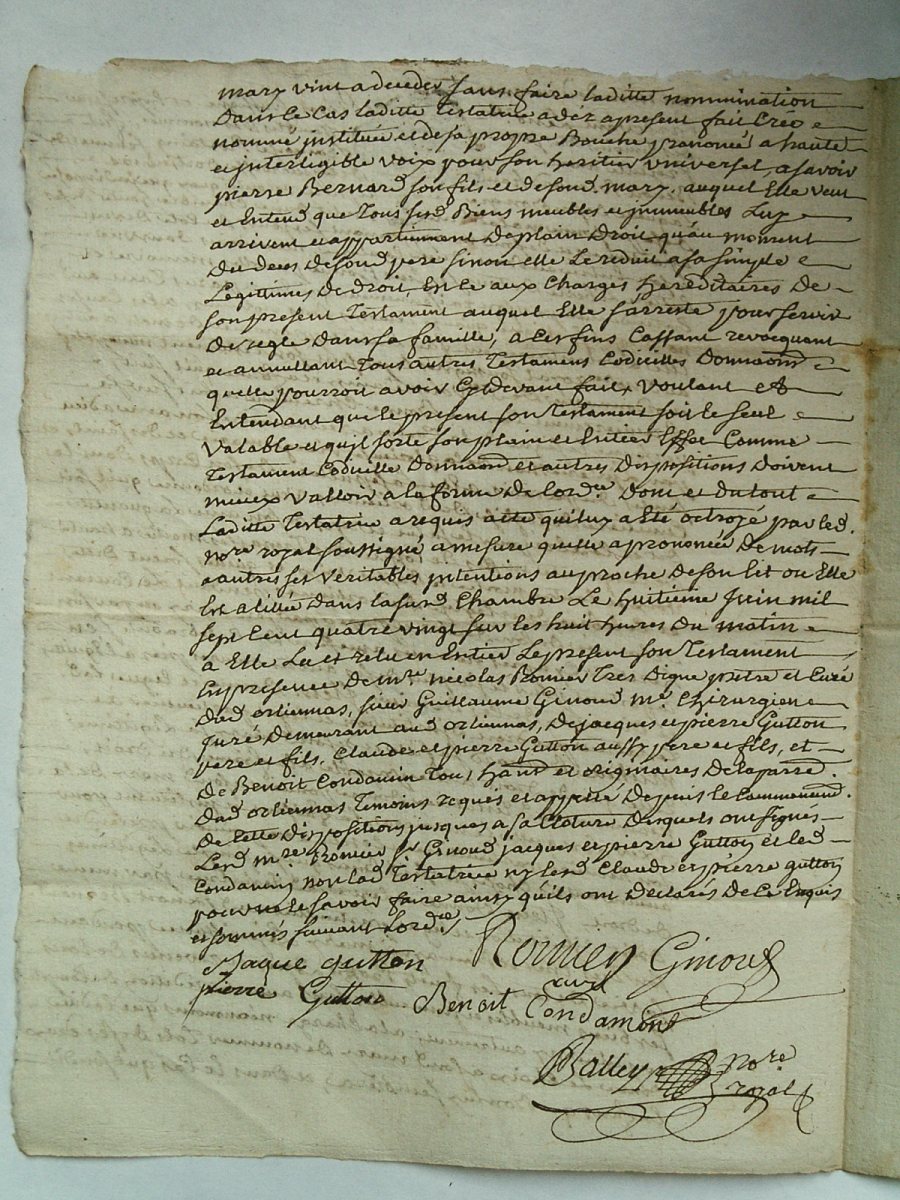 mary vint a deceder sans faire laditte nommination
Dans ce Cas laditte Testatrice a déz apresent fait Créé
nommé institué et de sa propre Bouche prononcé a haute
et interligible voix pour son heritier universel, a savoir
pierre Bernard son fils et desond. mary, auquel Elle veut
et Entend que Tous sesd. Biens meubles et immeubles Luy
arrivent et appartiennent De plain Droit qu'au moment
Du deces desond. pere sinon elle Le reduit a sa simple
Legittimes de droit, Et ce aux Charges hereditaires De
son present Testament auquel Elle s'arreste pour servir
De regle Dans sa famille, a Ces fins Cassant revocquant
et annullant Tous autres Testamens Codicilles Donnaons
quelle pourroit avoir Cydevant fait, voulant et
Entendant que le present son Testament soit le seul
Valable et quil sorte son plain et Entier Effet Comme
Testament Codicille Donnaond et autres Dispositions Doivent
mieux Valloir a la forme De lord.ce Dont et du tout
Laditte Testatrice a requis acte qui luy a Eté octroyé par led.
no.re royal soussigné a mesure quelle a prononcée De mots
a autres ses veritables intentions au proche De son lit ou Elle
Est alittée Dans lasusd. Chambre Le huitieme Juin mil
sept Cent quatre vingt sur les huit heures Du matin
a Elle Lu et relu en Entier Le present son Testament
En presence De m.re nicolas Romier Tres Digne pretre et Curé
Dud. orliennas, sieur Guillaume Ginoud m.e Chirurgien
Juré Demeurant aud. orliennas, De jacques et pierre Gutton
pere et fils, Claude et pierre Gutton aussy pere et fils, et
De Benoit Condamin Tous hants et originaires De la parred.
Dud. orliennas Temoins requis et appellé Depuis le Commencnd.
de Cette Dispositions jusques a sa Cloture Desquels ont signés
Lesd. m.re Romier s.r Ginoud jacques et pierre Gutton et led.
Condamin non lad. Testatrice ny lesd. Claude et pierre gutton
pour ne le savoir faire ainsy qu'ils ont Declarés De Ce Enquis
et sommés suivant Lord.ce /
Jaque gutton Romier Ginoud
curé
pierre Gutton Benoit Condamont
Balley no.re
royal